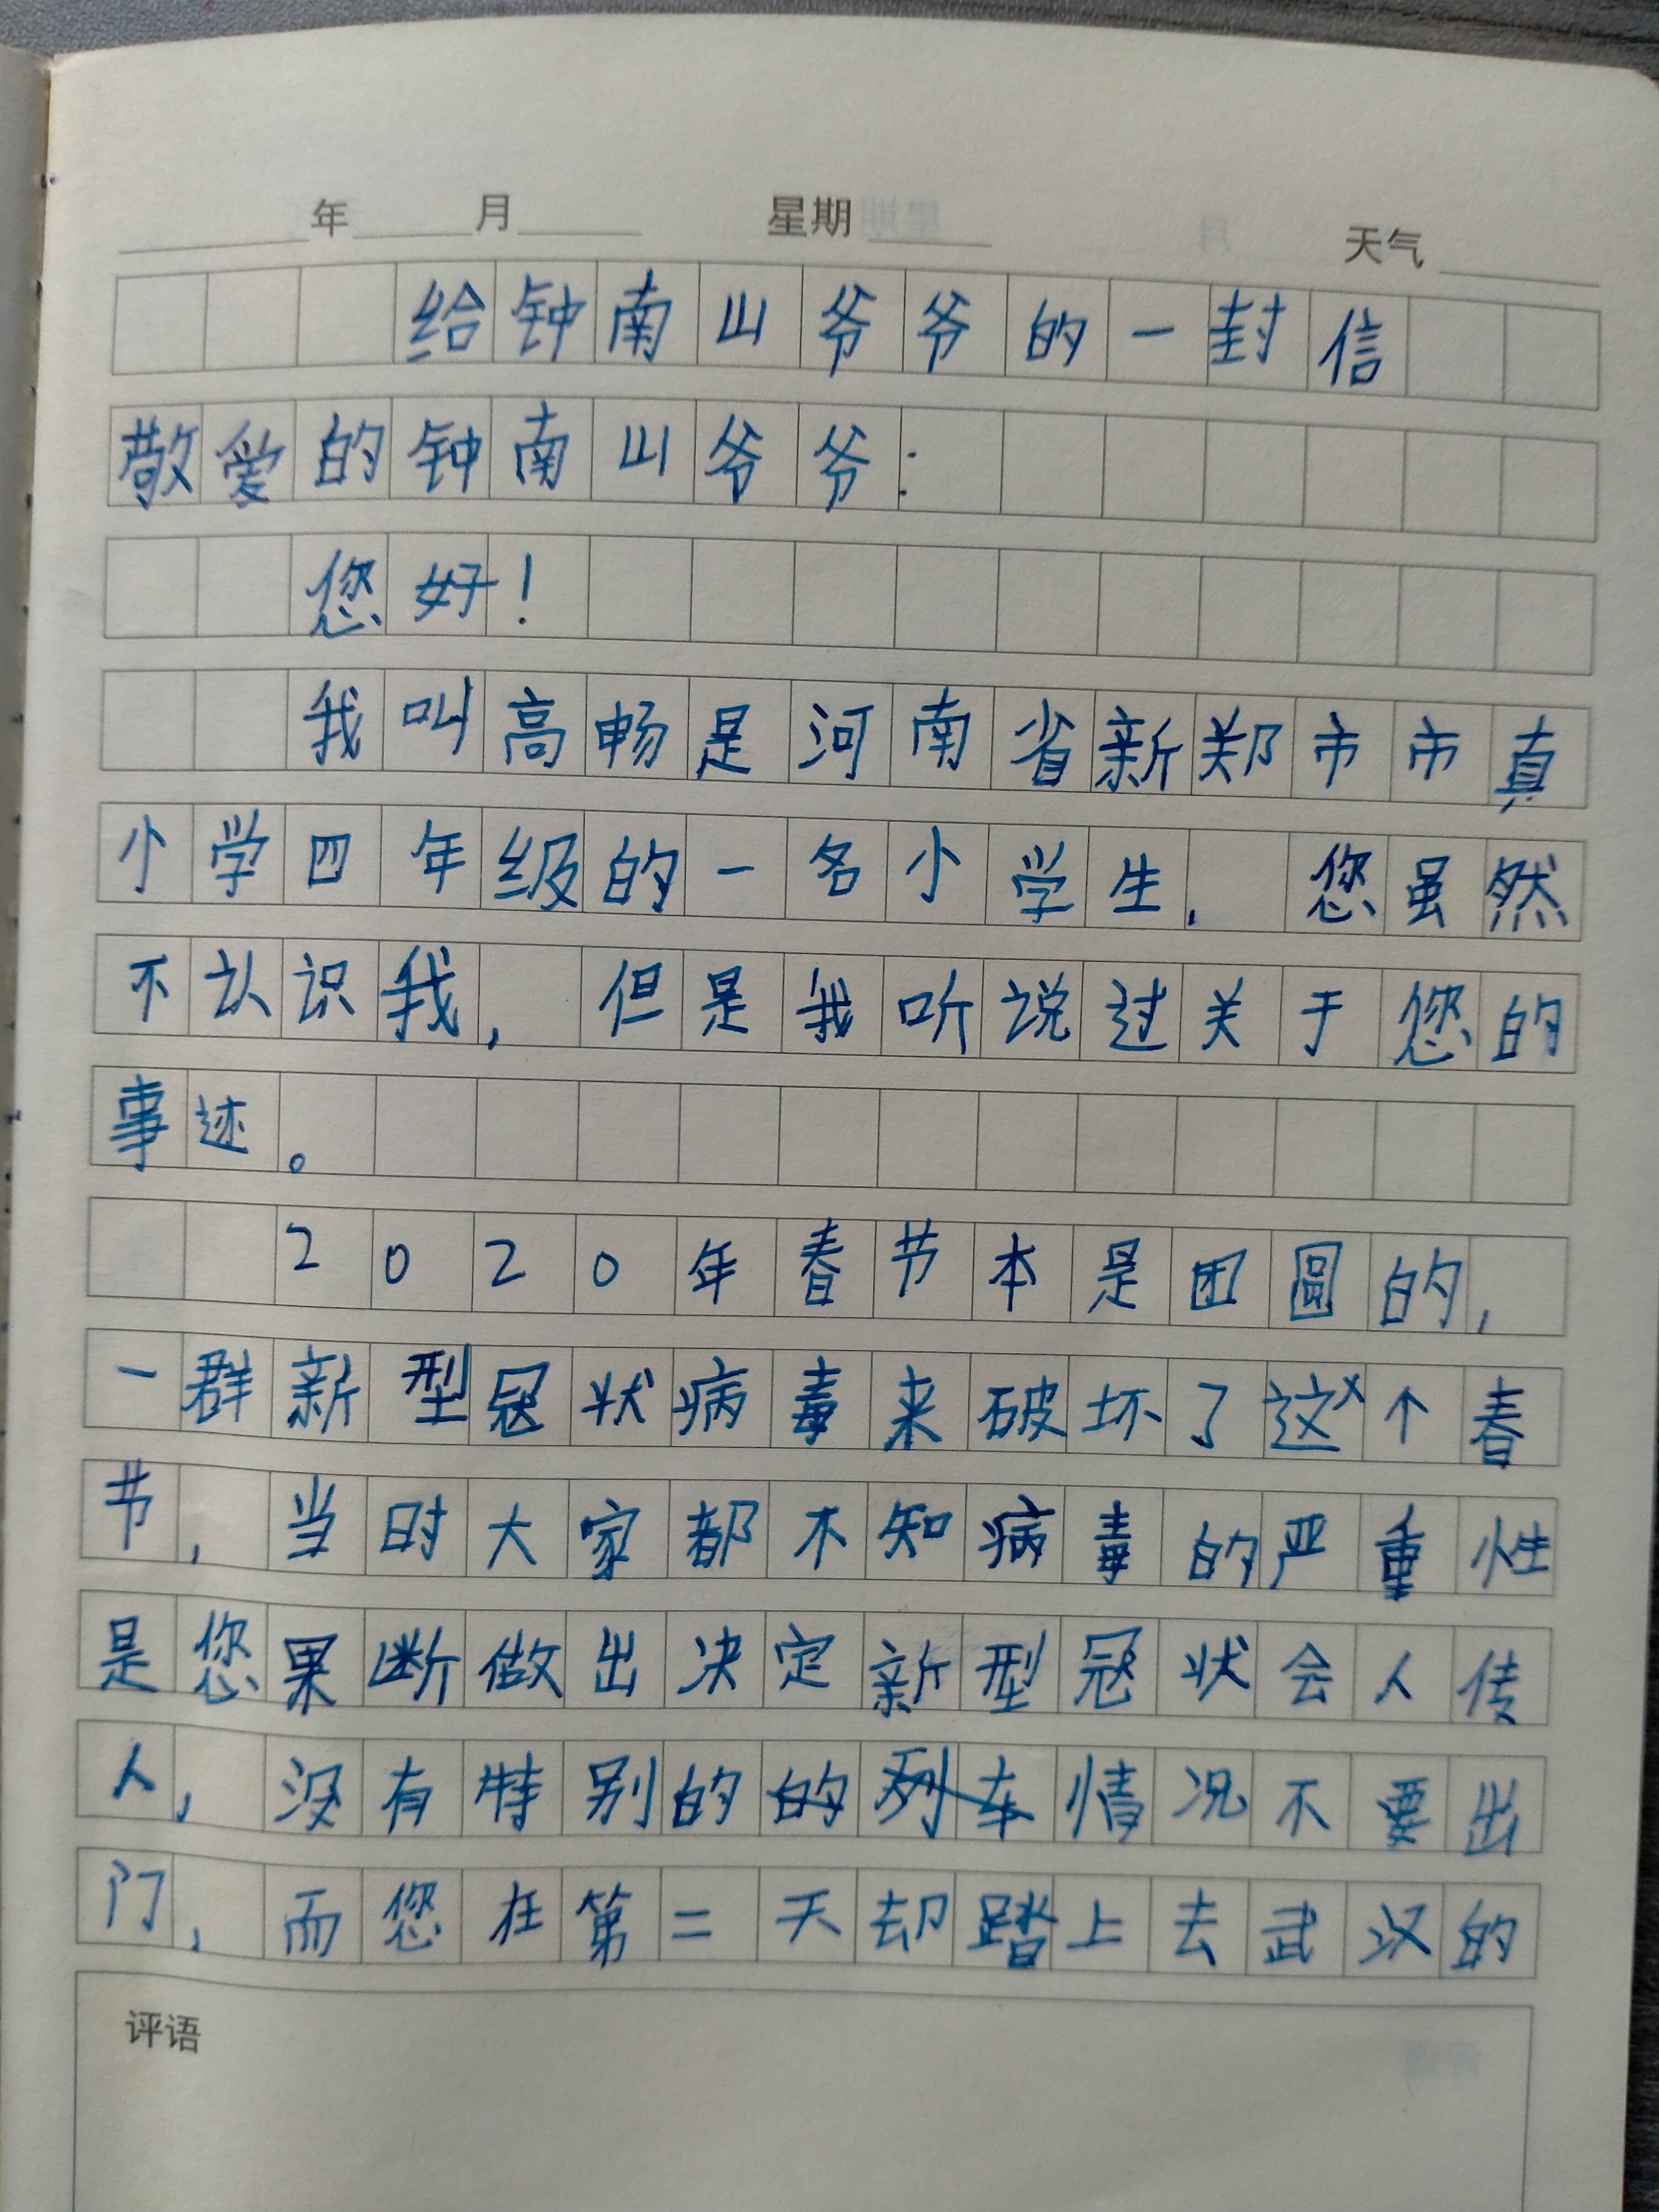 年 月 星期 天气
给钟南山爷爷的一封信
敬爱的钟南山爷爷:
您好!
我叫高畅是河南省新郑市市真
小学四年级的一各小学生,您虽然
不认识我,但是我听说过关于您的
事迹。
2020年春节本是团圆的,
一群新型冠状病毒来破坏了这个春
节,当时大家都不知病毒的严重性
是您果断做出决定新型冠状会人传
人,没有特别的的列车情况不要出
门,而您在第二天却踏上去武汉的
评语